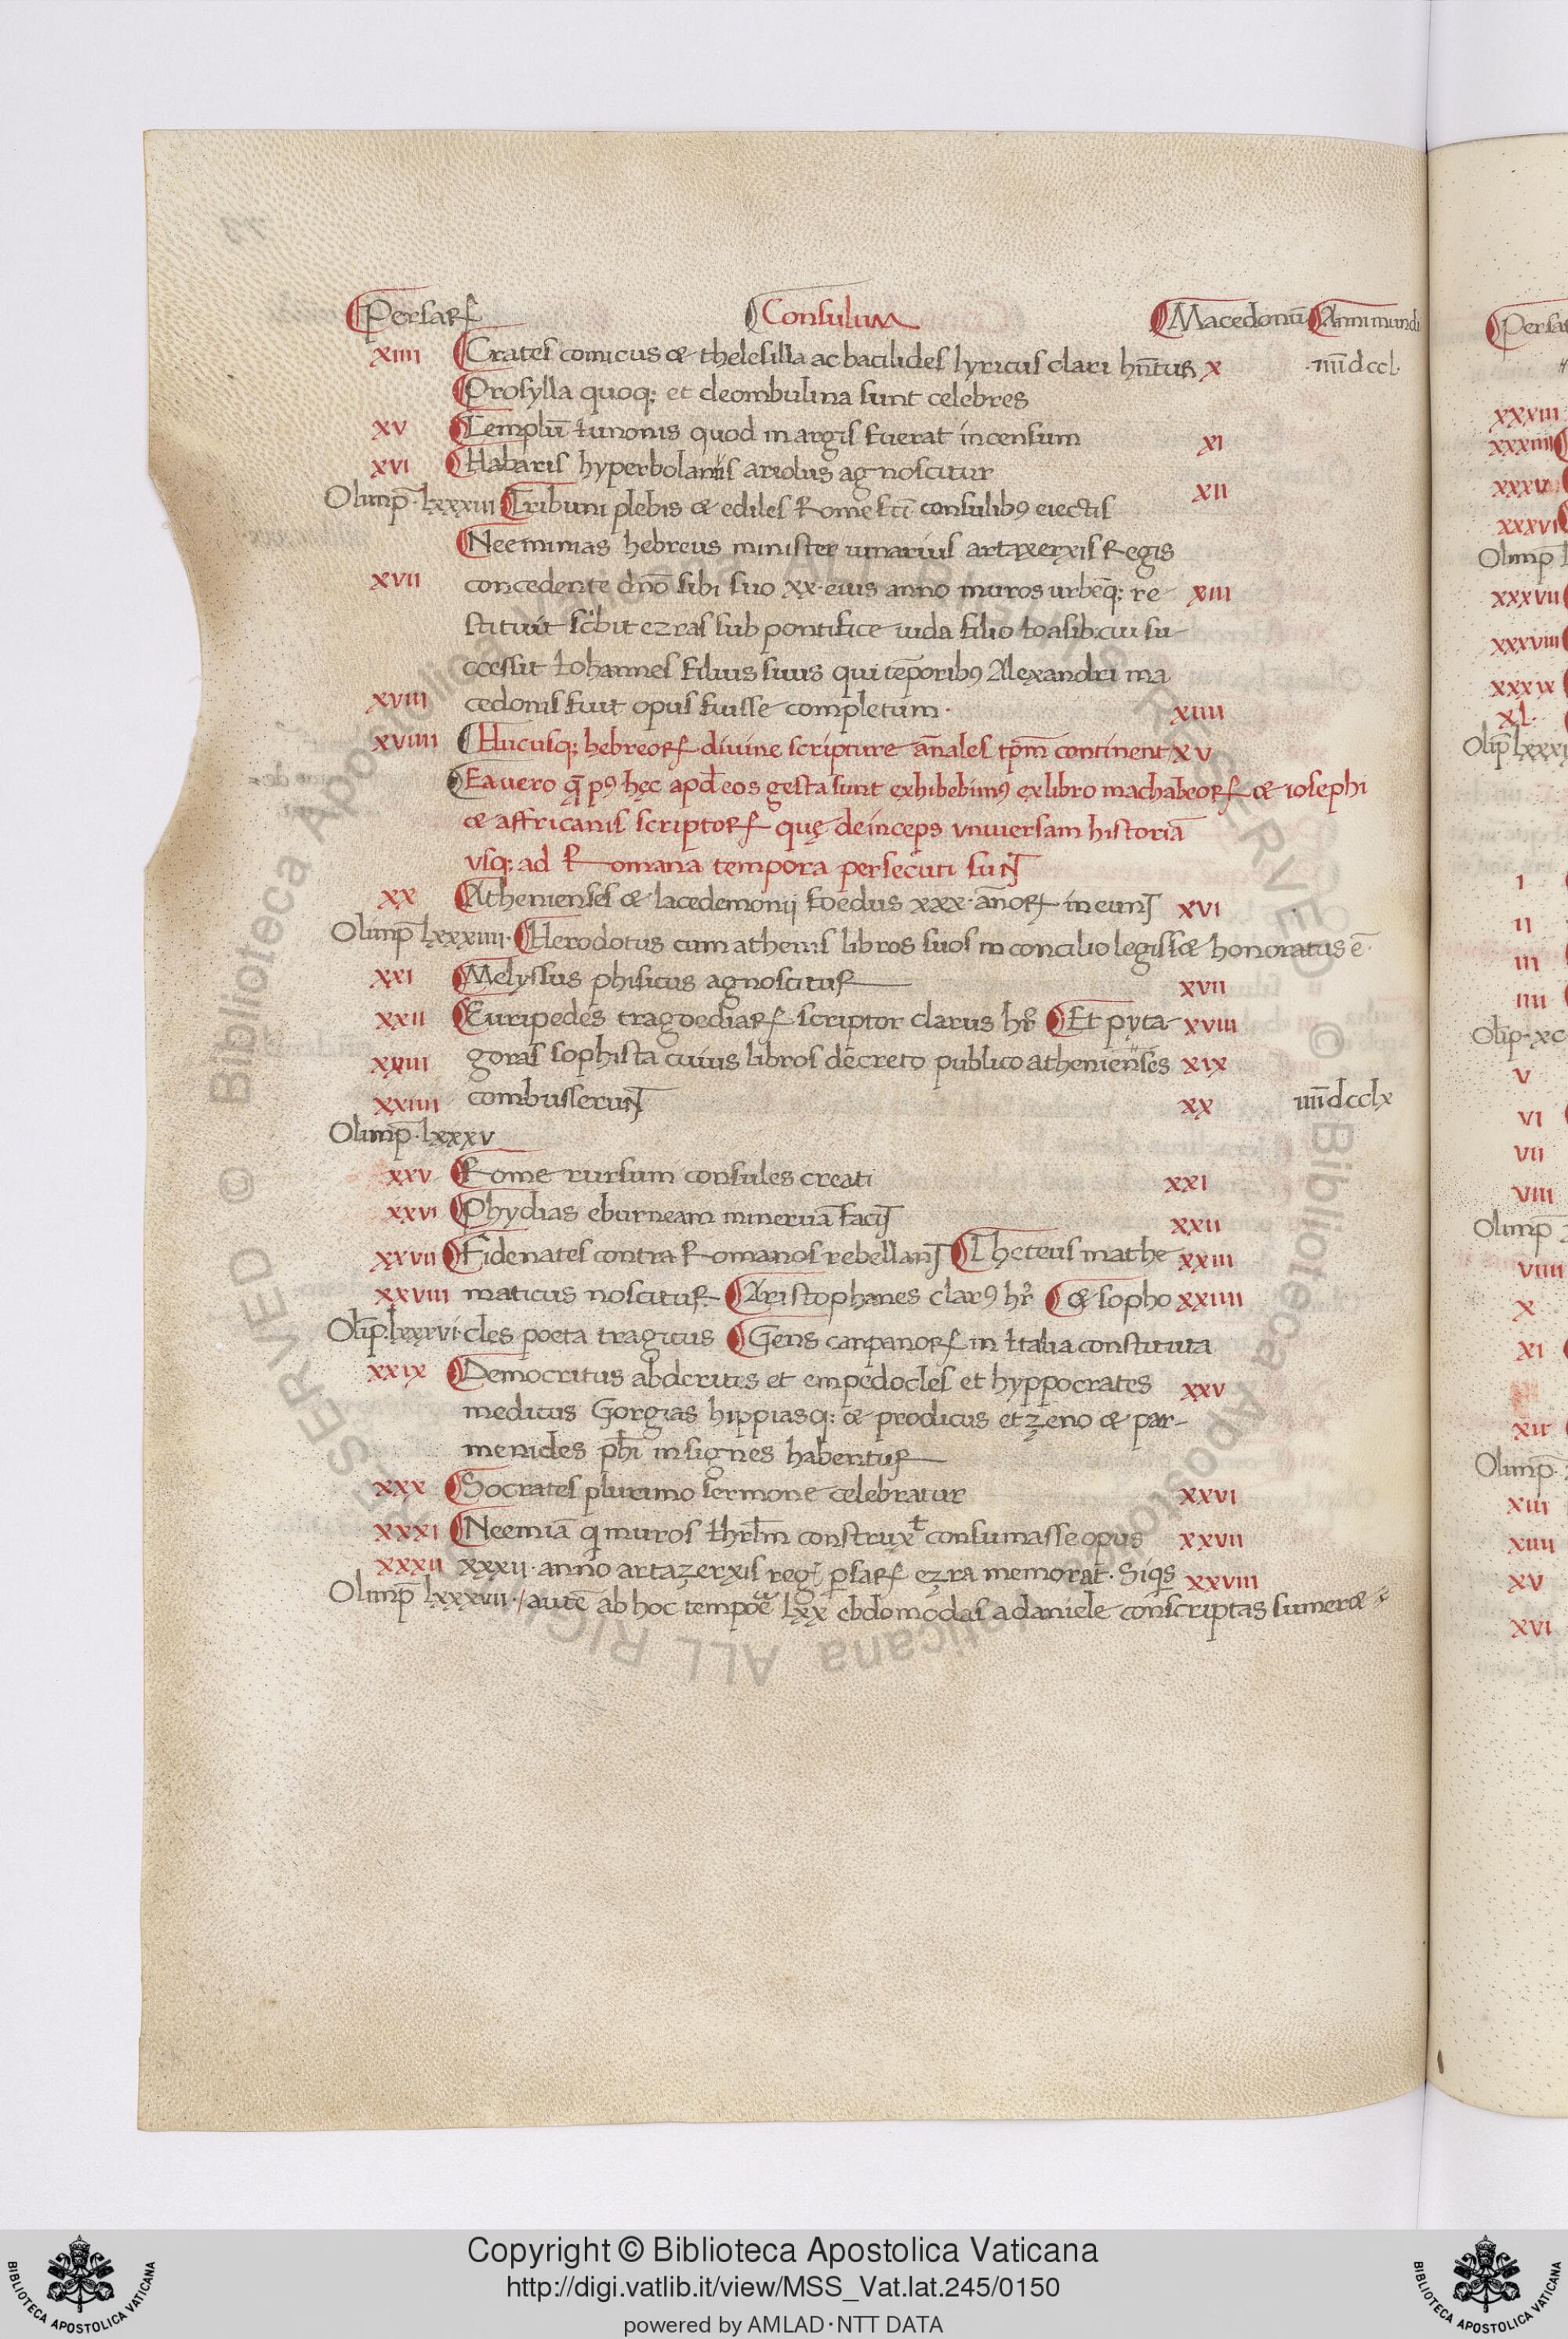 Persarꝝ Consulum Macedonū Anni mundi
xiiii Crates comicus & thelesilla ac bacilides lyricus clari hn̄tur x ·iiii̅dccl·
Prosylla quoq; et cleombulina sunt celebres
xv Templū Iunonis quod in argis fuerat incensum xi
xvi Habaris hyperbolanis ariolus agnoscitur
Olimp̄ lxxxiii Tribuni plebis & ediles Rome fcī consulibꝰ eiectis xii
Neeminias hebreus minister uinarius artaxerxis Regis
xvii concedente dn̄o sibi suo xx· eius anno muros urbēq; re xiii
stituit scͥbit ezras sub pontifice iuda filio Ioasib: cui su-
ccessit Iohannes filius suus qui tēporibꝰ Alexandri ma
xviii cedonis fuit opus fuisse completum· xiiii
xviiii Hucusq; hebreorꝝ diuine scripture ānales tpm̄ continent xv
Ea uero q̄ pꝰ hęc apđ eos gesta sunt exhibebimꝰ ex libro machabeorꝝ & iosephi
& affricanis scriptorꝝ quę deinceps vniuersam historiā
vsq; ad Romana tempora persecuti sunt̄
xx Athenienses & lacedemonij foedus xxx· ānorꝝ ineunt̄ xvi
Olimp̄ lxxxiiii· Herodotus cum athenis libros suos in concilio legiss& honoratus ē·
xxi Melyssus phisicus agnoscitur xvii
xxii Euripedes tragoediarꝝ scriptor clarus hr̄ Et pyta- xviii
xxiii goras sophista cuius libros decreto publico athenienses xix
xxiiii combusserunt̄ xx iiii̅dcclx
Olimp̄· lxxxv
xxv Rome rursum consules creati xxi
xxvi Phydias eburneam mineruā facit̄ xxii
xxvii Fidenates contra Romanos rebellant̄ Theteus mathe xxiii
xxviii maticus noscitur Aristophanes clarꝰ hr̄ & sopho xxiiii
Olīp· lxxxvi· cles poeta tragicus Gens canpanorꝝ in Italia constituta
xxix Democritus abderites et empedocles et hyppocrates xxv
medicus Gorgias hippiasq; & prodicus et zeno & par-
menides phī insignes habentur
xxx Socrates plurimo sermone celebratur xxvi
xxxi Neemiā q̄ muros Ihrl̄m construxͭ consumasse opus xxvii
xxxii xxxii· anno artazerxis reḡ ꝑsarꝝ ezra memorat̄· Siqͥs xxviii
Olimp̄ lxxxvii· / autē ab hoc tempore lxx ebdomodas a daniele conscriptas sumer&
Copyright © Biblioteca Apostolica Vaticana
http://digi.vatlib.it/view/MSS_Vat.lat.245/0150
powered by AMLAD·NTT DATA